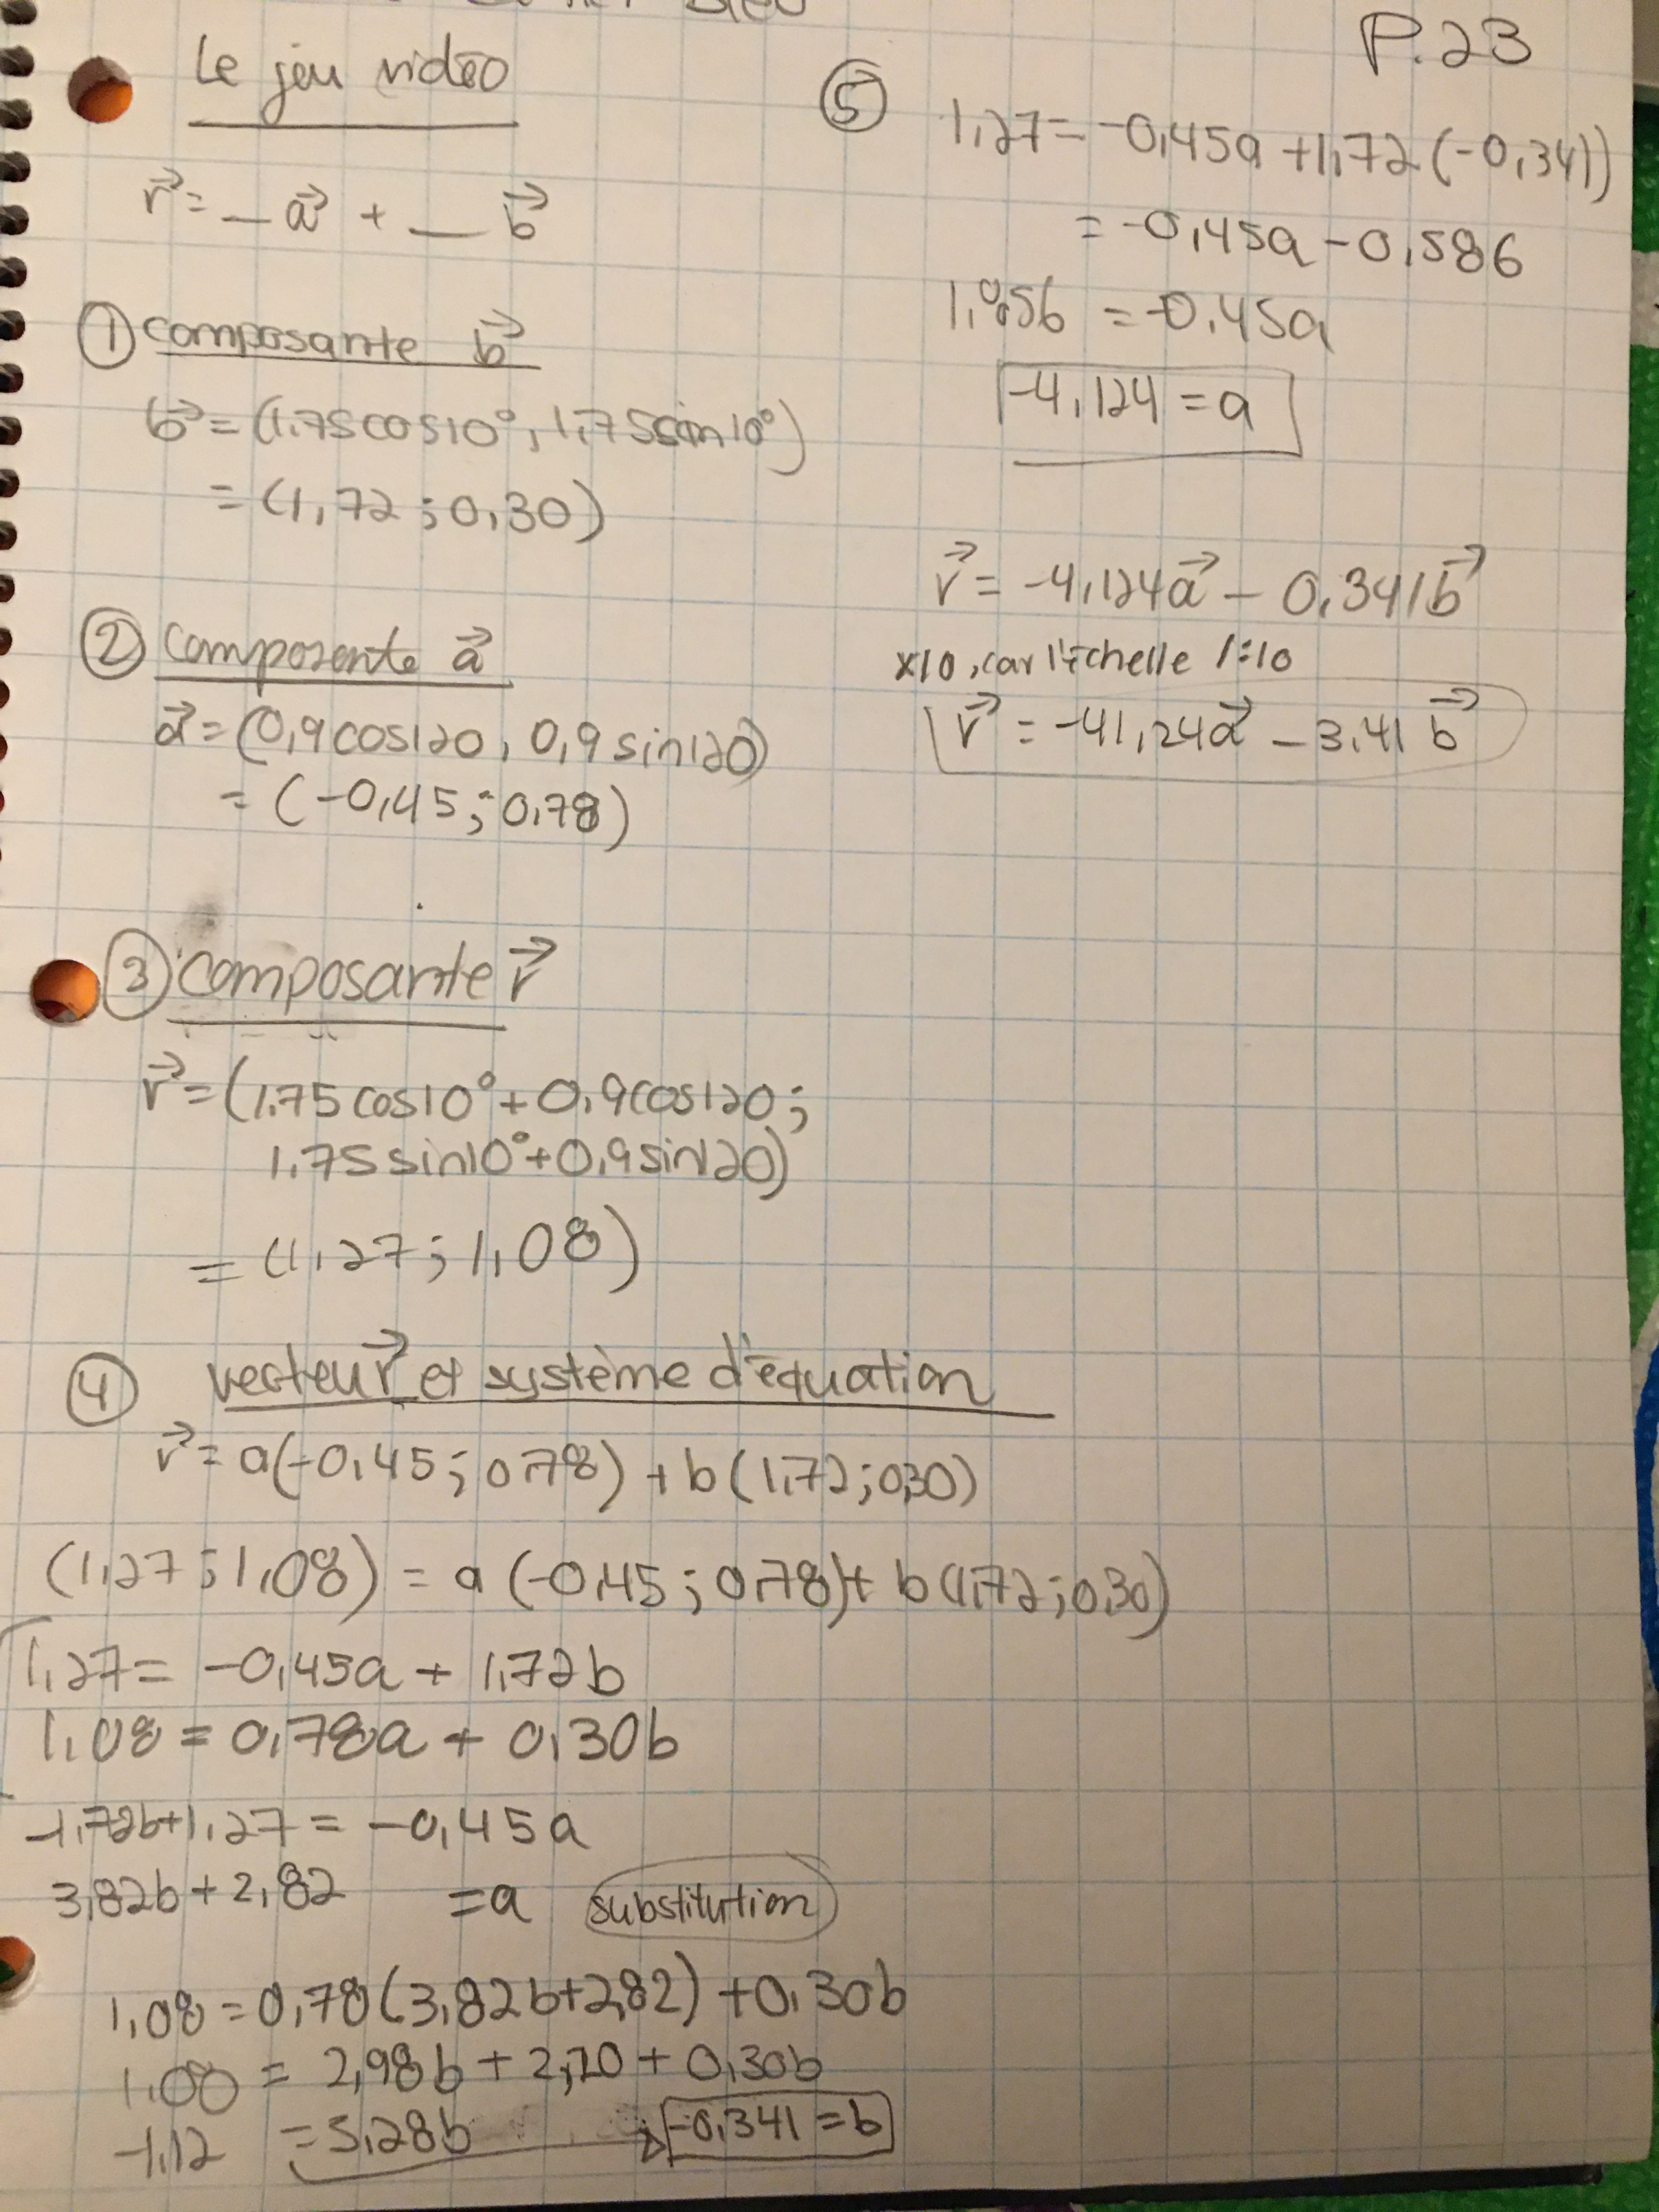 P.23
Le jeu vidéo
r⃗ = _ a⃗ + _ b⃗
① composante b⃗
b⃗ = (1,75cos10°, 1,75sin10°)
= (1,72 ; 0,30)
② composente a⃗
a⃗ = (0,9cos120, 0,9sin120)
= (-0,45 ; 0,78)
③ composante r⃗
r⃗ = (1.75cos10° + 0,9cos120 ;
1.75sin10° + 0,9sin120)
= (1,27 ; 1,08)
④ vecteur r⃗ et système d'équation
r⃗ = a(-0,45 ; 0,78) + b(1,72 ; 0,30)
(1,27 ; 1,08) = a(-0,45 ; 0,78) + b(1,72 ; 0,30)
1,27 = -0,45a + 1,72b
1,08 = 0,78a + 0,30b
-1,72b + 1,27 = -0,45a
3,82b + 2,82 = a substitution
1,08 = 0,78(3,82b + 2,82) + 0,30b
1,08 = 2,98b + 2,20 + 0,30b
-1,12 = 3,28b → -0,341 = b
⑤ 1,27 = -0,45a + 1,72(-0,341)
= -0,45a - 0,586
1,856 = -0,45a
-4,124 = a
r⃗ = -4,124a⃗ - 0,341b⃗
x10, car l'échelle 1:10
r⃗ = -41,24a⃗ - 3,41b⃗